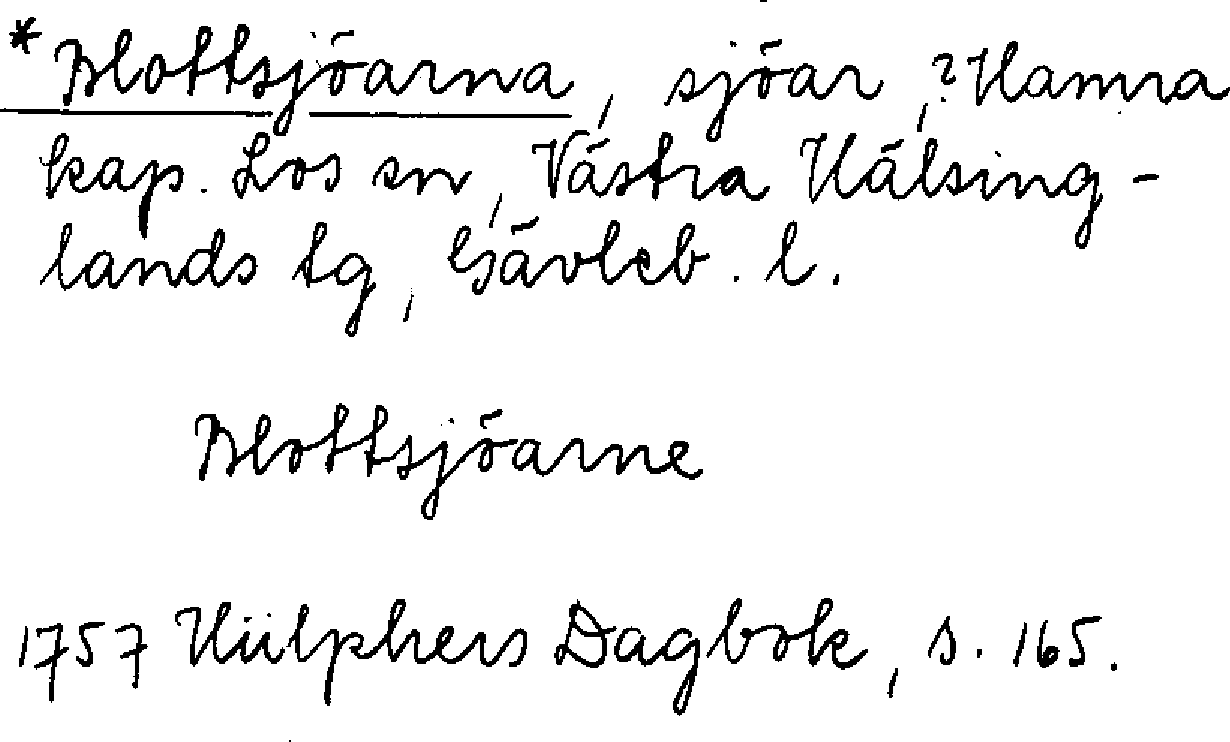 *Blottsjöarna, sjöar, ?Hamra
kap. Los sn, Västra Hälsing-
lands tg, Gävleb. l.
Blottsjöarne
1757 Hülphers Dagbok, s. 165.